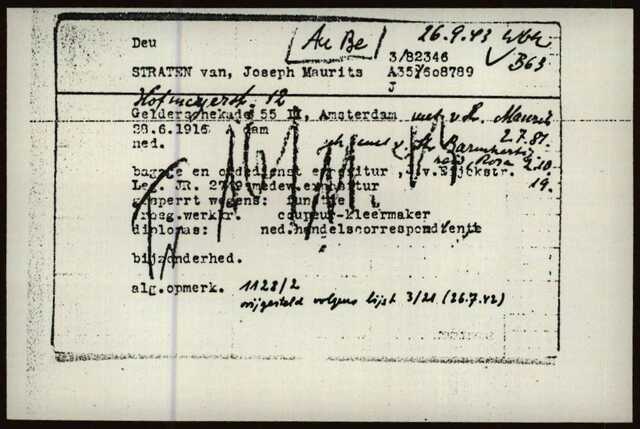 Deu
Au Be
26.9.43
B63
3/82346
STRATEN van, Joseph Maurits A35/608789
J
Hofmeyerstr. 12
Geldersche kade 55 II, Amsterdam
28.6.1916 A'dam
2.7.81.
ned.
Rosa 2.10.
bagage en ordedienst expositur, J.v.Eijckstr.
19.
Leg. JR. 27/9 medew.expositur
gesperrt wegens: functie
vroeg.werkkr. coupeur-kleermaker
diploma's: ned.handelscorrespondentie
bijzonderhed.
alg.opmerk. 1128/2
vrijgesteld volgens lijst 3/21 (26.7.42)